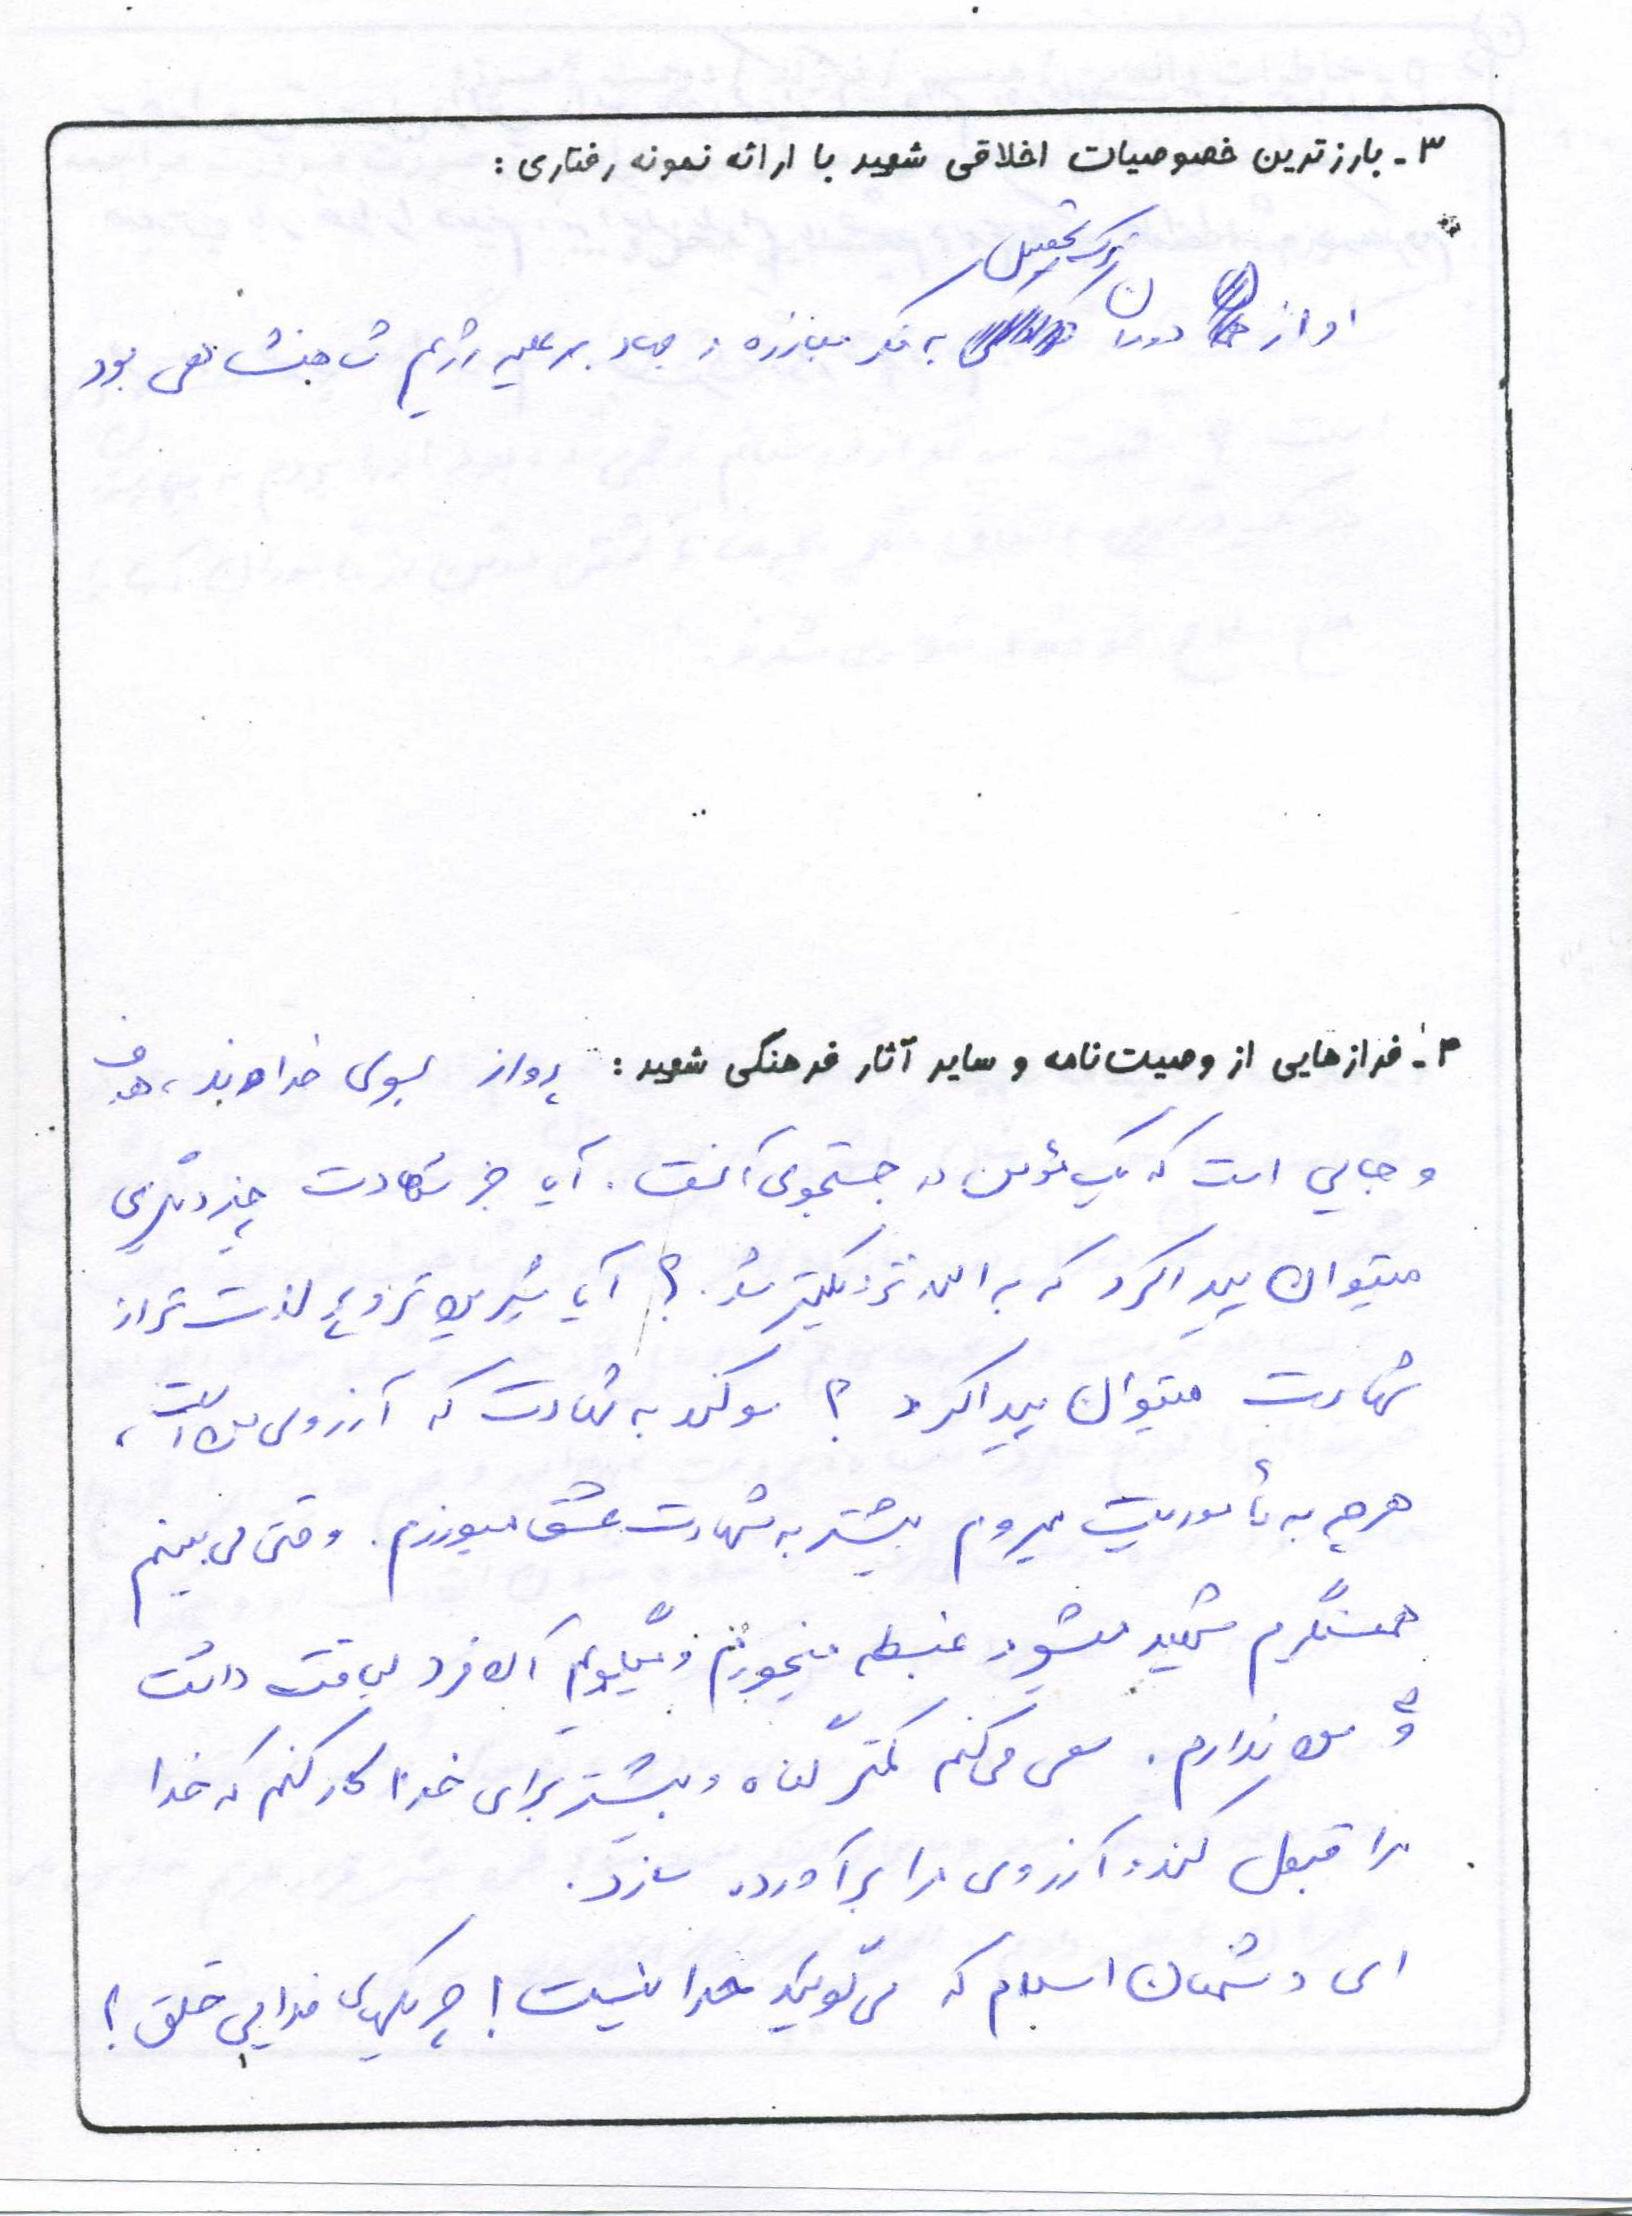 ۳- بارزترین خصوصیات اخلاقی شهید با ارائه نمونه رفتاری :
ترک تحصیل
او از دوران به فکر مبارزه و جهاد بر علیه رژیم شاهنشاهی بود
۴- فرازهایی از وصیت‌نامه و سایر آثار فرهنگی شهید : پرواز بسوی خداوند ، هدف
و جایی است که یک مؤمن در جستجوی آنست . آیا جز شهادت چیز دیگری
میتوان پیدا کرد که به الله نزدیکتر شد . ؟ آیا شیرین تر و پر لذت تر از
شهادت میتوان پیدا کرد ؟ سوگند به شهادت که آرزوی من است ،
هرچه به مأموریت میروم بیشتر به شهادت عشق میورزم . وقتی می بینم
همسنگرم شهید میشود غبطه میخورم و میگویم آن فرد لیاقت داشت
و من ندارم . سعی می کنم کمتر گناه و بیشتر برای خدا کار کنم که خدا
مرا قبول کند و آرزوی مرا برآورده سازد .
ای دشمنان اسلام که می گوئید خدا نیست ! چریکهای فدایی خلق !